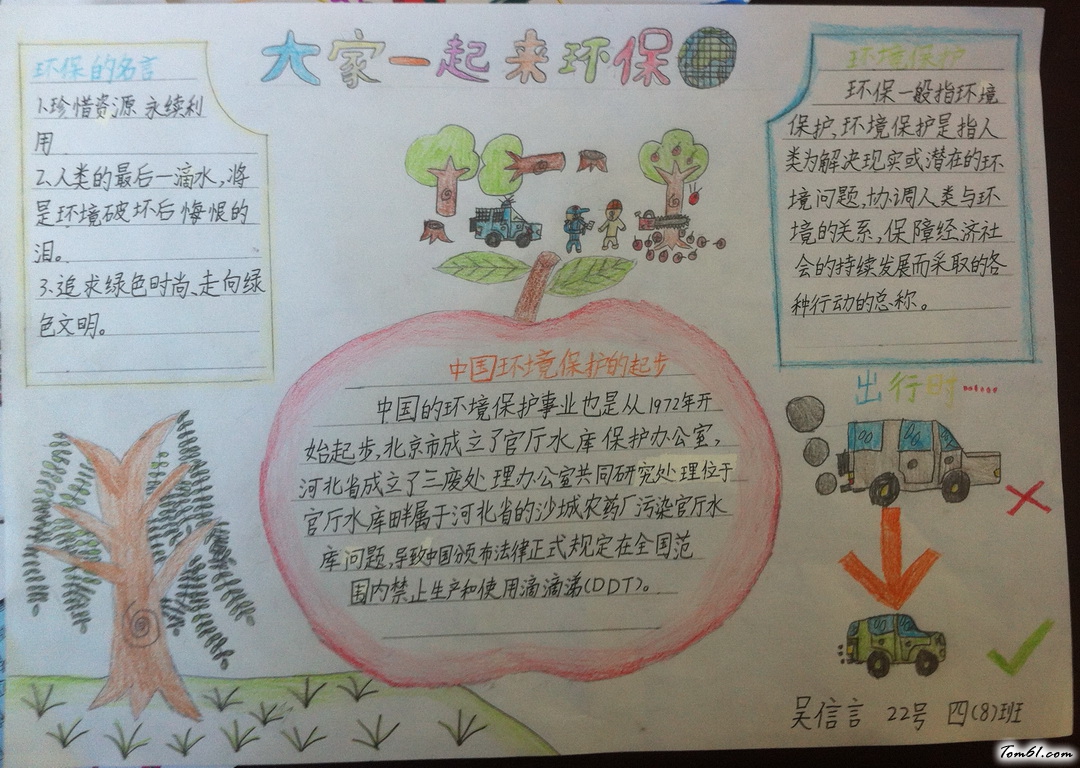 大家一起来环保
环保的名言
1、珍惜资源 永续利
用
2、人类的最后一滴水,将
是环境破坏后悔恨的
泪。
3、追求绿色时尚、走向绿
色文明。
环境保护
环保一般指环境
保护,环境保护是指人
类为解决现实或潜在的环
境问题,协调人类与环
境的关系,保障经济社
会的持续发展而采取的各
种行动的总称。
中国环境保护的起步
中国的环境保护事业也是从1972年开
始起步,北京市成立了官厅水库保护办公室,
河北省成立了三废处理办公室共同研究处理位于
官厅水库畔属于河北省的沙城农药厂污染官厅水
库问题,导致中国颁布法律正式规定在全国范
围内禁止生产和使用滴滴涕(DDT)。
出行时……
吴信言 22号 四(8)班
Tom61.com